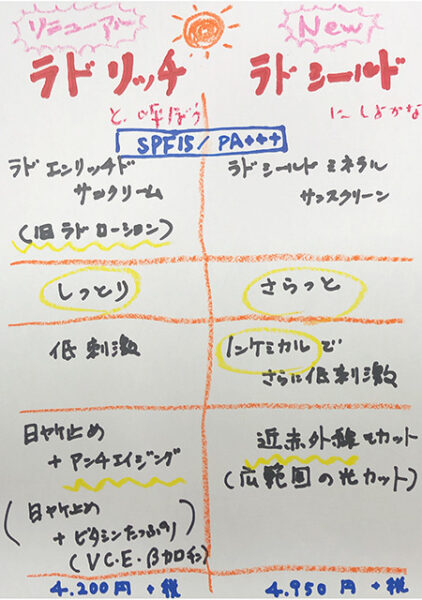 リニューアル
New
ラドリッチ
ラドシールド
と呼ぼう
にしよかな
SPF15/PA+++
ラドエンリッチド
サンクリーム
(旧ラドローション)
ラドシールドミネラル
サンスクリーン
しっとり
さらっと
低刺激
ノンケミカルで
さらに低刺激
日ヤケ止め
+アンチエイジング
(日ヤケ止め
+ビタミンたっぷり)
(VC.E.βカロチン)
近赤外線もカット
(広範囲の光カット)
4.200円+税
4.950円+税